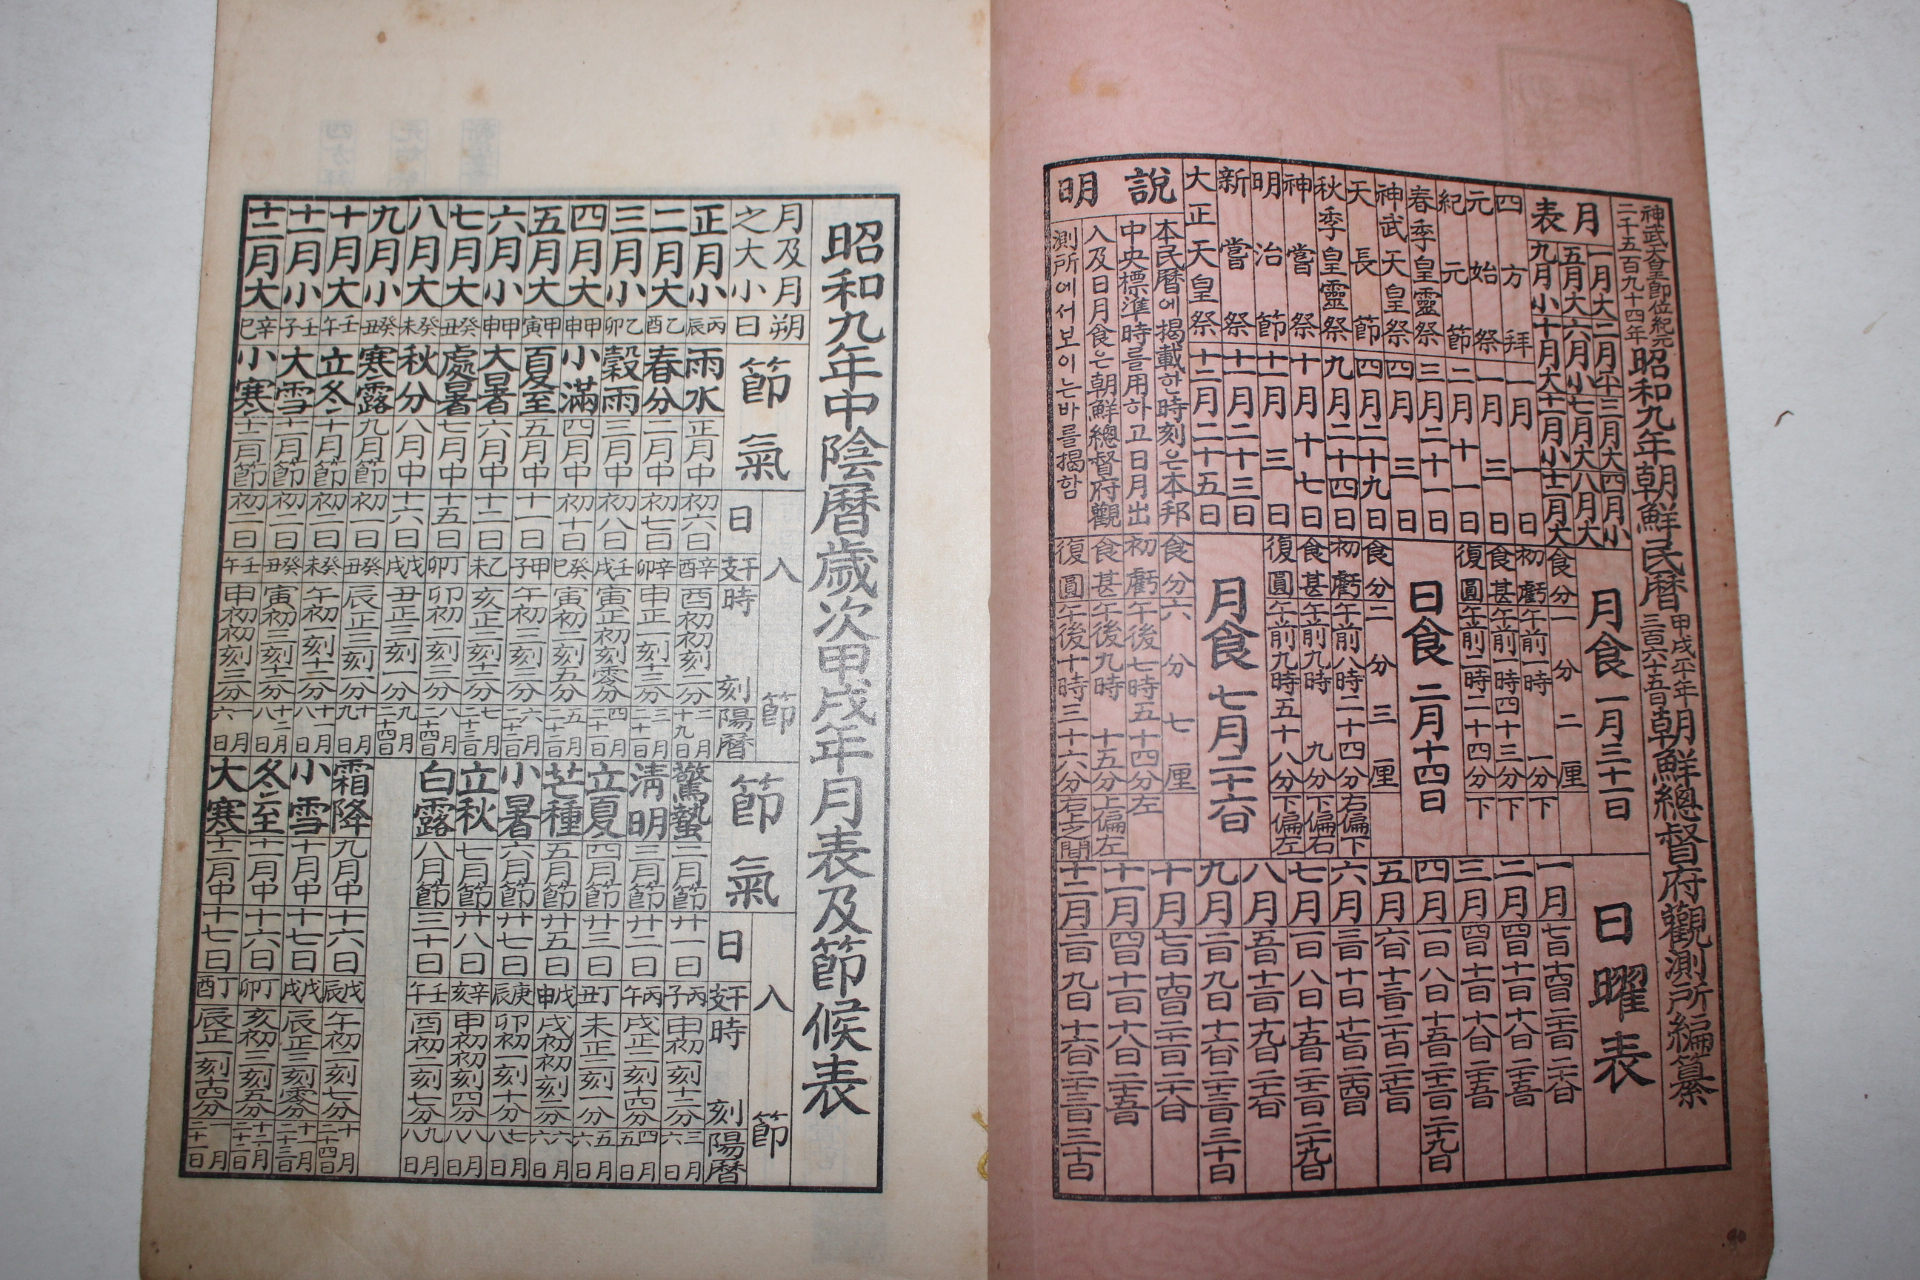 神武天皇即位紀元
二千五百九十四年
昭和九年朝鮮民曆
甲戌平年
三百六十五日
朝鮮總督府觀測所編纂
月表
一月大二月平三月大四月小
五月大六月小七月大八月大
九月小十月大十一月小十二月大
四方拜 一月一日
元始祭 一月三日
紀元節 二月十一日
春季皇靈祭 三月二十一日
神武天皇祭 四月三日
天長節 四月二十九日
秋季皇靈祭 九月二十四日
神嘗祭 十月十七日
明治節 十一月三日
新嘗祭 十一月二十三日
大正天皇祭 十二月二十五日
說明
本民曆에揭載한時刻은本邦
中央標準時를用하고日月出
入及日月食은朝鮮總督府觀
測所에서보이는바를揭함
月食 一月三十一日
食分 一分二厘
初虧 午前一時一分 下
食甚 午前一時四十三分 下
復圓 午前二時二十四分 下
日食 二月十四日
食分 二分三厘
初虧 午前八時二十四分 右偏下
食甚 午前九時九分 下偏右
復圓 午前九時五十八分 下偏左
月食 七月二十六日
食分 六分七厘
初虧 午後七時五十四分 左
食甚 午後九時十五分 上偏左
復圓 午後十時三十六分 右上之間
日曜表
一月 七日 十四日 二十一日 二十八日
二月 四日 十一日 十八日 二十五日
三月 四日 十一日 十八日 二十五日
四月 一日 八日 十五日 二十二日 二十九日
五月 六日 十三日 二十日 二十七日
六月 三日 十日 十七日 二十四日
七月 一日 八日 十五日 二十二日 二十九日
八月 五日 十二日 十九日 二十六日
九月 二日 九日 十六日 二十三日 三十日
十月 七日 十四日 二十一日 二十八日
十一月 四日 十一日 十八日 二十五日
十二月 二日 九日 十六日 二十三日 三十日
昭和九年中陰曆歲次甲戌年月表及節候表
月及月之大小 朔日 節氣 入節 日 干支 時刻 陽曆 節氣 入節 日 干支 時刻 陽曆
正月小 丙辰 雨水 正月中 初六日 辛酉 酉初初刻二分 二月十九日 驚蟄 二月節 廿一日 丙子 申初一刻十二分 三月六日
二月大 乙酉 春分 二月中 初七日 辛卯 申正一刻十三分 三月二十一日 淸明 三月節 廿二日 丙午 戌正二刻十四分 四月五日
三月小 乙卯 穀雨 三月中 初八日 壬戌 寅正初刻零分 四月二十一日 立夏 四月節 廿三日 丁丑 未正二刻一分 五月六日
四月大 甲申 小滿 四月中 初十日 癸巳 寅初二刻五分 五月二十二日 芒種 五月節 廿五日 戊申 戌初初刻二分 六月六日
五月大 甲寅 夏至 五月中 十一日 甲子 午初三刻三分 六月二十二日 小暑 六月節 廿七日 庚辰 卯初一刻十分 七月八日
六月小 甲申 大暑 六月中 十二日 乙未 亥正二刻十二分 七月二十三日 立秋 七月節 廿八日 辛亥 申初初刻四分 八月八日
七月大 癸丑 處暑 七月中 十五日 丁卯 卯初二刻三分 八月二十四日 白露 八月節 三十日 壬午 酉初二刻七分 九月八日
八月大 癸未 秋分 八月中 十六日 戊戌 丑正三刻一分 九月二十四日
九月小 癸丑 寒露 九月節 初一日 癸丑 辰正三刻一分 十月九日 霜降 九月中 十六日 戊辰 午初二刻七分 十月二十四日
十月大 壬午 立冬 十月節 初二日 癸未 午初一刻十二分 十一月八日 小雪 十月中 十七日 戊戌 辰正三刻零分 十一月二十三日
十一月小 壬子 大雪 十一月節 初二日 癸丑 寅初三刻十二分 十二月八日 冬至 十一月中 十六日 丁卯 亥初三刻五分 十二月二十二日
十二月大 辛巳 小寒 十二月節 初二日 壬午 申初初刻三分 一月六日 大寒 十二月中 十七日 丁酉 辰正一刻十四分 一月二十一日